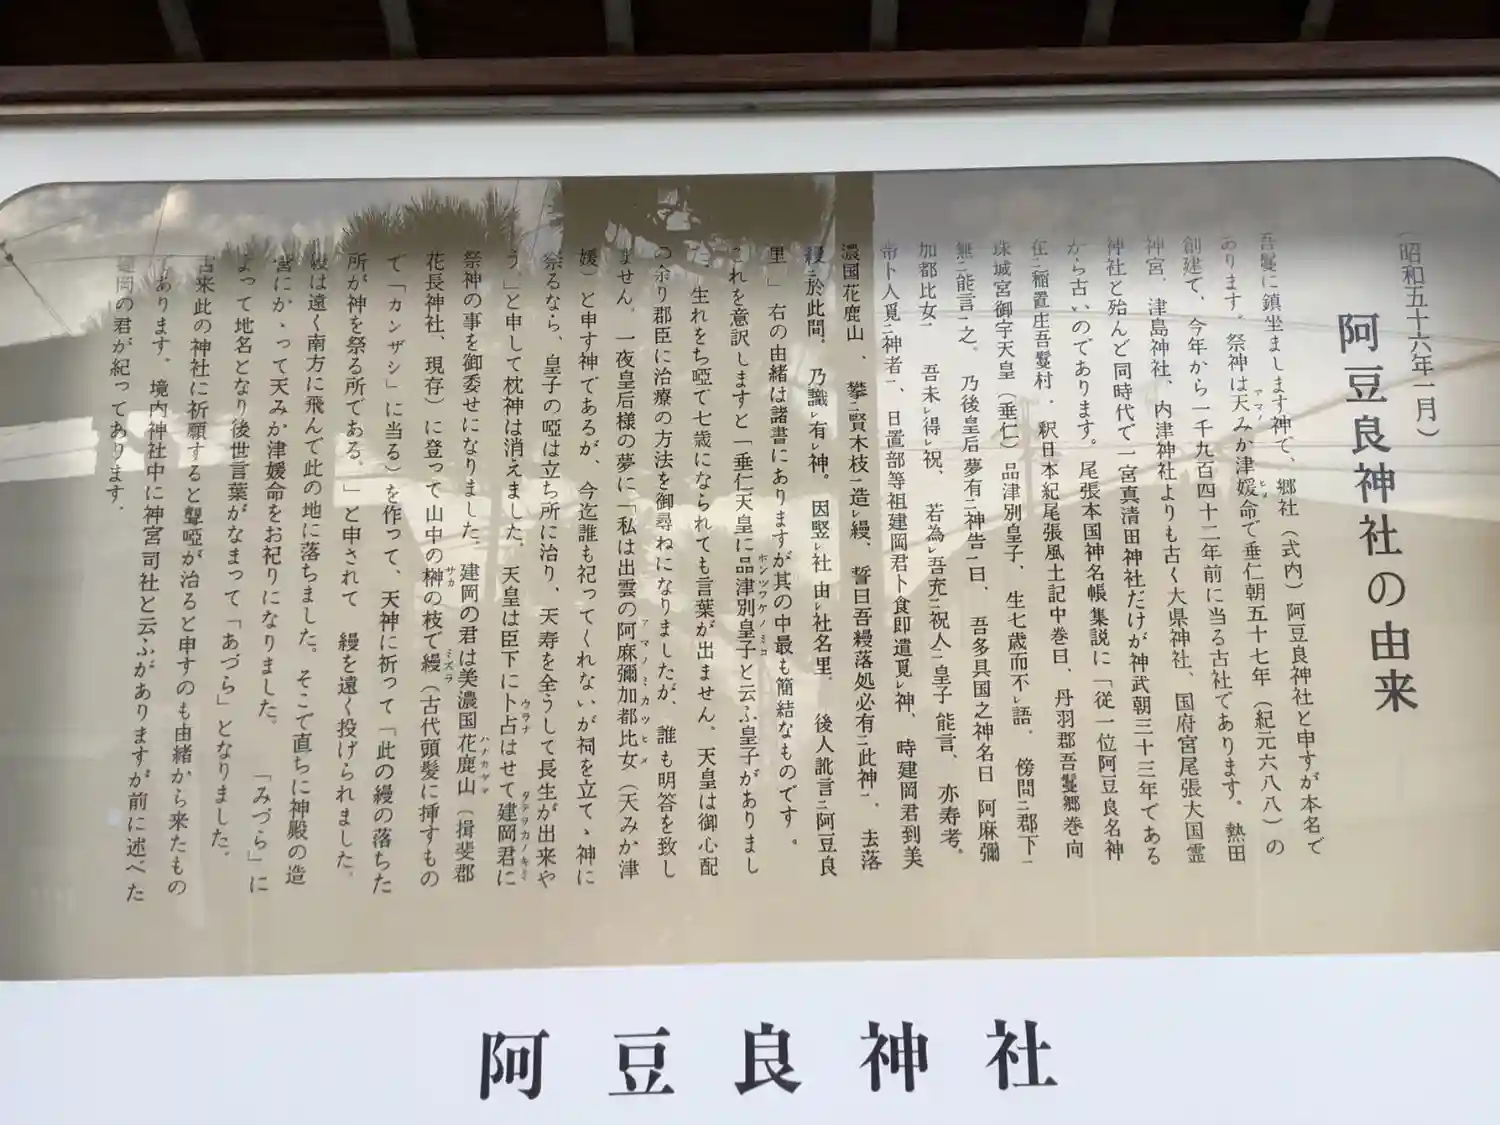 （昭和五十六年一月）
阿豆良神社の由来
吾鬘に鎮坐まします神で、郷社（式内）阿豆良神社と申すが本名で
あります。祭神は天みか津媛命で垂仁朝五十七年（紀元六八八）の
創建て、今年から一千九百四十二年前に当る古社であります。熱田
神宮、津島神社、内津神社よりも古く大県神社、国府宮尾張大国霊
神社と殆んど同時代で一宮真清田神社だけが神武朝三十三年である
から古いのであります。尾張本国神名帳集説に「従一位阿豆良名神
在ニ稲置庄吾鬘村．釈日本紀尾張風土記中巻曰、丹羽郡吾鬘郷巻向
珠城宮御宇天皇（垂仁）品津別皇子、生七歳而不レ語．傍問ニ郡下一
無ニ能言一之。乃後皇后夢有ニ神告一曰、吾多具国之神名曰 阿麻彌
加都比女一 吾未レ得レ祝、若為レ吾充ニ祝人一皇子能言、亦寿考。
帝卜人覓ニ神者一、日置部等祖建岡君卜食即遣覓レ神、時建岡君到美
濃国花鹿山、攀ニ賢木枝一造レ縵、誓曰吾縵落処必有ニ此神一．去落
縵ニ於此間。乃識レ有レ神。因竪レ社由レ社名里。後人訛言ニ阿豆良
里」右の由緒は諸書にありますが其の中最も簡結なものです。
これを意訳しますと「垂仁天皇に品津別皇子と云ふ皇子がありまし
ホンツワケノミコ
た、生れをち啞で七歳になられても言葉が出ません。天皇は御心配
の余り郡臣に治療の方法を御尋ねになりましたが、誰も明答を致し
ません。一夜皇后様の夢に「私は出雲の阿麻彌加都比女（天みか津
アマノミカツヒメ
媛）と申す神であるが、今迄誰も祀ってくれないが祠を立てゝ神に
祭るなら、皇子の啞は立ち所に治り、天寿を全うして長生が出来や
う。」と申して枕神は消えました。天皇は臣下に卜占はせて建岡君に
ウラナ タテヲカノキミ
祭神の事を御委せになりました。建岡の君は美濃国花鹿山（揖斐郡
ハナカヤマ
花長神社、現存）に登って山中の榊の枝で縵（古代頭髪に挿すもの
サカ ミズラ
て「カンザシ」に当る）を作って、天神に祈って「此の縵の落ちた
所が神を祭る所である。」と申されて 縵を遠く投げられました。
縵は遠く南方に飛んで此の地に落ちました。そこで直ちに神殿の造
営にかゝって天みか津媛命をお祀りになりました。 「みづら」に
よって地名となり後世言葉がなまって「あづら」となりました。
古来此の神社に祈願すると聾啞が治ると申すのも由緒から来たもの
であります。境内神社中に神宮司社と云ふがありますが前に述べた
建岡の君が紀ってあります．
阿豆良神社